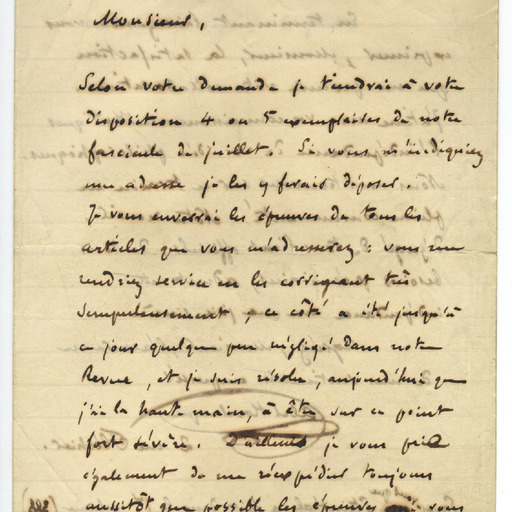 Monsieur,
Selon votre demande je tiendrai à votre
disposition 4 ou 5 exemplaires de notre
fascicule de juillet. Si vous m'indiquiez
une adresse je les y ferais déposer.
Je vous enverrai les épreuves de tous les
articles que vous m'adresserez ; vous me
rendrez service en les corrigeant très
scrupuleusement, ce côté a été jusqu'à
ce jour quelque peu négligé dans notre
Revue, et je suis résolu, aujourd'hui que
j'ai la haute main, à être sur ce point
fort sévère. D'ailleurs je vous prie
également de me réexpédier toujours
aussitôt que possible les épreuves vous